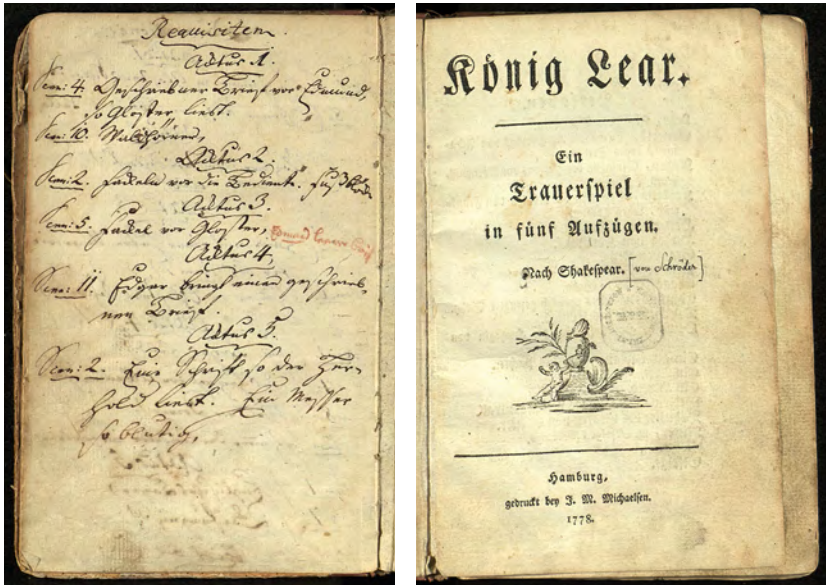 Requisiten.
Actus 1.
Scen: 4. Geschriebner Brief vor Edmund,
so Gloster liest.
Scen: 10. Waldhörner,
Actus 2.
Scen: 2. Fackeln vor die Bediente.
Actus 3.
Scen: 5. Fackel vor Gloster,
Actus 4,
Scen: 11. Edgar bringt einen geschrieb-
nen Brief.
Actus 5.
Scen: 2. Eine Schrift so der Her-
hold liest. Ein Messer
so blutig,
König Lear.
Ein
Trauerſpiel
in fünf Aufzügen.
Nach Shakeſpear. [von Schröder]
Hamburg,
gedruckt bey J. M. Michaelſen.
1778.